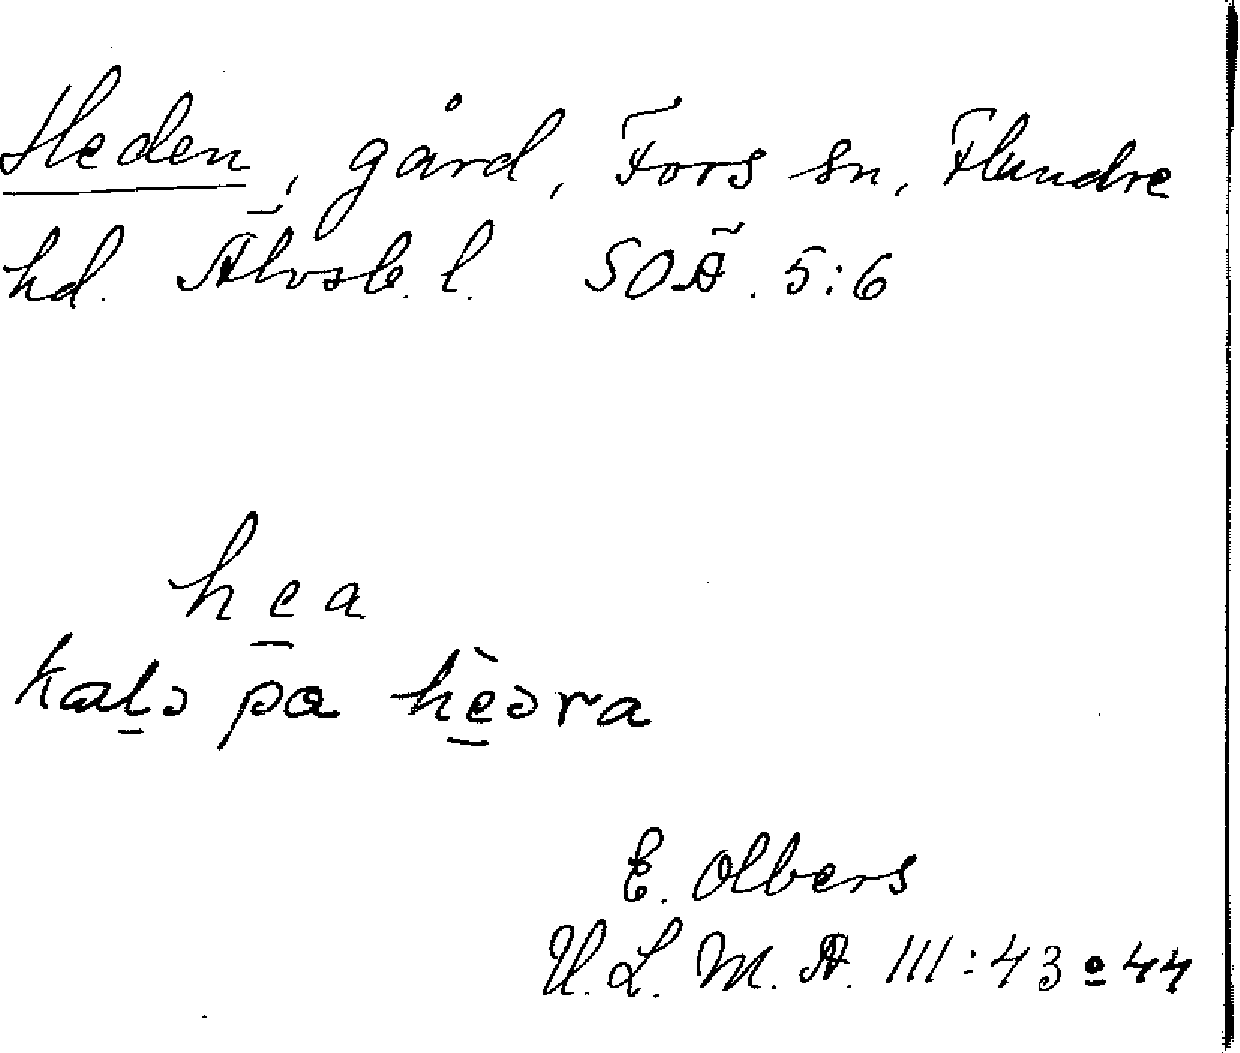 Heden, gård, Fors sn, Flundre
hd. Älvsb. l. SOÄ. 5:6
hea
kalə pa hèəra
E. Olbers
U.L.M.A. III:43 o 44